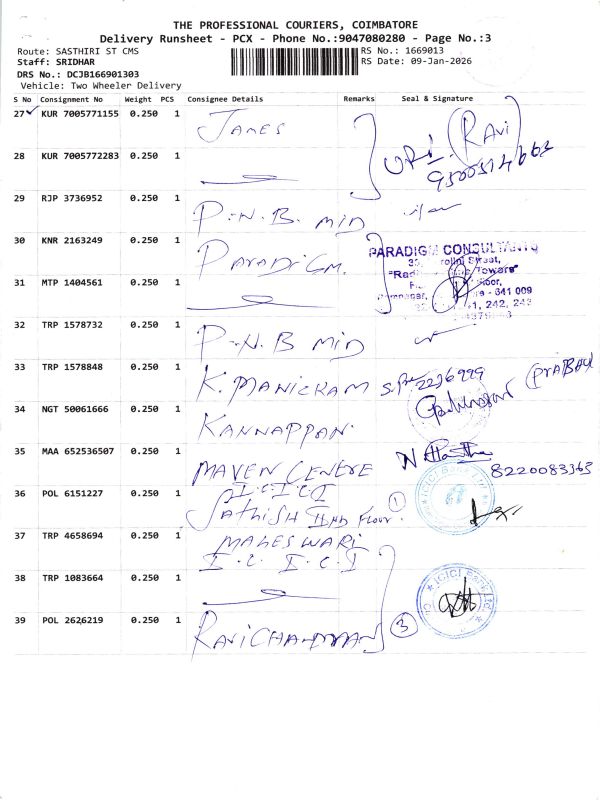 THE PROFESSIONAL COURIERS, COIMBATORE
Delivery Runsheet - PCX - Phone No.:9047080280 - Page No.:3
Route: SASTHIRI ST CMS
RS No.: 1669013
Staff: SRIDHAR
RS Date: 09-Jan-2026
DRS No.: DCJB166901303
Vehicle: Two Wheeler Delivery
S No Consignment No Weight PCS Consignee Details Remarks Seal & Signature
27 KUR 7005771155 0.250 1 JAMES (RAVI)
28 KUR 7005772283 0.250 1
29 RJP 3736952 0.250 1 P.N.B. MID
30 KNR 2163249 0.250 1 PARADIGM. PARADIGM CONSULTANTS
Street,
Towers"
31 MTP 1404561 0.250 1
641 009
242, 243
32 TRP 1578732 0.250 1 P.N.B MID
33 TRP 1578848 0.250 1 K. MANICKAM 2236999 (PRABHU
34 NGT 50061666 0.250 1 KANNAPPAN.
35 MAA 652536507 0.250 1 MAVEN CENTRE 8220083365
36 POL 6151227 0.250 1 I.C.I.C.I
SATHISH IIND FLOOR. 1
37 TRP 4658694 0.250 1 MAHESWARI
I.C.I.C.I
38 TRP 1083664 0.250 1 ICICI BANK LTD
39 POL 2626219 0.250 1 RAVICHANDRAN 3